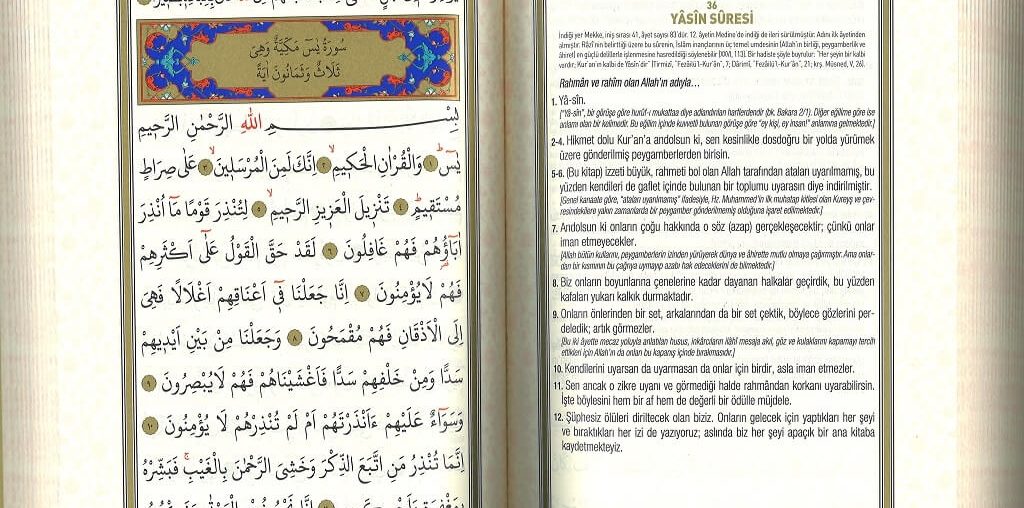 سُورَةُ يٰسٓ مَكِّيَّةٌ وَهِيَ
ثَلَاثٌ وَثَمَانُونَ اٰيَةً
بِسْمِ اللّٰهِ الرَّحْمٰنِ الرَّحِيمِ
يٰسٓۜ ﴿١﴾ وَالْقُرْاٰنِ الْحَك۪يمِۙ ﴿٢﴾ اِنَّكَ لَمِنَ الْمُرْسَل۪ينَۙ ﴿٣﴾ عَلٰى صِرَاطٍ
مُسْتَق۪يمٍۜ ﴿٤﴾ تَنْز۪يلَ الْعَز۪يزِ الرَّح۪يمِۙ ﴿٥﴾ لِتُنْذِرَ قَوْمًا مَٓا اُنْذِرَ
اٰبَٓاؤُ۬هُمْ فَهُمْ غَافِلُونَ ﴿٦﴾ لَقَدْ حَقَّ الْقَوْلُ عَلٰٓى اَكْثَرِهِمْ
فَهُمْ لَا يُؤْمِنُونَ ﴿٧﴾ اِنَّا جَعَلْنَا ف۪ٓي اَعْنَاقِهِمْ اَغْلَالًا فَهِيَ
اِلَى الْاَذْقَانِ فَهُمْ مُقْمَحُونَ ﴿٨﴾ وَجَعَلْنَا مِنْ بَيْنِ اَيْد۪يهِمْ
سَدًّا وَمِنْ خَلْفِهِمْ سَدًّا فَاَغْشَيْنَاهُمْ فَهُمْ لَا يُبْصِرُونَ ﴿٩﴾
وَسَوَٓاءٌ عَلَيْهِمْ ءَاَنْذَرْتَهُمْ اَمْ لَمْ تُنْذِرْهُمْ لَا يُؤْمِنُونَ ﴿١٠﴾
اِنَّمَا تُنْذِرُ مَنِ اتَّبَعَ الذِّكْرَ وَخَشِيَ الرَّحْمٰنَ بِالْغَيْبِۚ فَبَشِّرْهُ
36
YÂSÎN SÛRESİ
İndiği yer Mekke, iniş sırası 41, âyet sayısı 83'dür. 12. âyetin Medine'de indiği de ileri sürülmüştür. Adını ilk âyetinden
almıştır. Râzî'nin belirttiği üzere bu sûrenin, İslâm inançlarının üç temel umdesinin (Allah'ın birliği, peygamberlik ve
âhiret) en güçlü delillerle işlenmesine hasredildiği söylenebilir (XXVI, 113). Bir hadiste şöyle buyrulur: "Her şeyin bir kalbi
vardır; Kur'an'ın kalbi de Yâsîn'dir" (Tirmizî, "Fezâilü'l-Kur'ân", 7; Dârimî, "Fezâilü'l-Kur'ân", 21; krş. Müsned, V, 26).
Rahmân ve rahîm olan Allah'ın adıyla…
1. Yâ-sîn.
["Yâ-sîn", bir görüşe göre hurûf-ı mukattaa diye adlandırılan harflerdendir (bk. Bakara 2/1). Diğer eğilime göre ise
anlamı olan bir kelimedir. Bu eğilim içinde kuvvetli bulunan görüşe göre "ey kişi, ey insan!" anlamına gelmektedir.]
2-4. Hikmet dolu Kur'an'a andolsun ki, sen kesinlikle dosdoğru bir yolda yürümek
üzere gönderilmiş peygamberlerden birisin.
5-6. (Bu kitap) izzeti büyük, rahmeti bol olan Allah tarafından ataları uyarılmamış, bu
yüzden kendileri de gaflet içinde bulunan bir toplumu uyarasın diye indirilmiştir.
[Genel kanaate göre, "ataları uyarılmamış" ifadesiyle, Hz. Muhammed'in ilk muhatap kitlesi olan Kureyş ve çev-
resindekilere yakın zamanlarda bir peygamber gönderilmemiş olduğuna işaret edilmektedir.]
7. Andolsun ki onların çoğu hakkında o söz (azap) gerçekleşecektir; çünkü onlar
iman etmeyecekler.
[Allah bütün kullarını, peygamberlerin izinden yürüyerek dünya ve âhirette mutlu olmaya çağırmıştır. Ama onlar-
dan bir kısmının bu çağrıya uymayıp azabı hak edeceklerini de bilmektedir.]
8. Biz onların boyunlarına çenelerine kadar dayanan halkalar geçirdik, bu yüzden
kafaları yukarı kalkık durmaktadır.
9. Onların önlerinden bir set, arkalarından da bir set çektik, böylece gözlerini per-
deledik; artık görmezler.
[Bu iki âyette mecaz yoluyla anlatılan husus, inkârcıların ilâhî mesaja akıl, göz ve kulaklarını kapamayı tercih
ettikleri için Allah'ın da onları bu kapanış içinde bırakmasıdır.]
10. Kendilerini uyarsan da uyarmasan da onlar için birdir, asla iman etmezler.
11. Sen ancak o zikre uyanı ve görmediği halde rahmândan korkanı uyarabilirsin.
İşte böylesini hem bir af hem de değerli bir ödülle müjdele.
12. Şüphesiz ölüleri diriltecek olan biziz. Onların gelecek için yaptıkları her şeyi
ve bıraktıkları her izi de yazıyoruz; aslında biz her şeyi apaçık bir ana kitaba
kaydetmekteyiz.